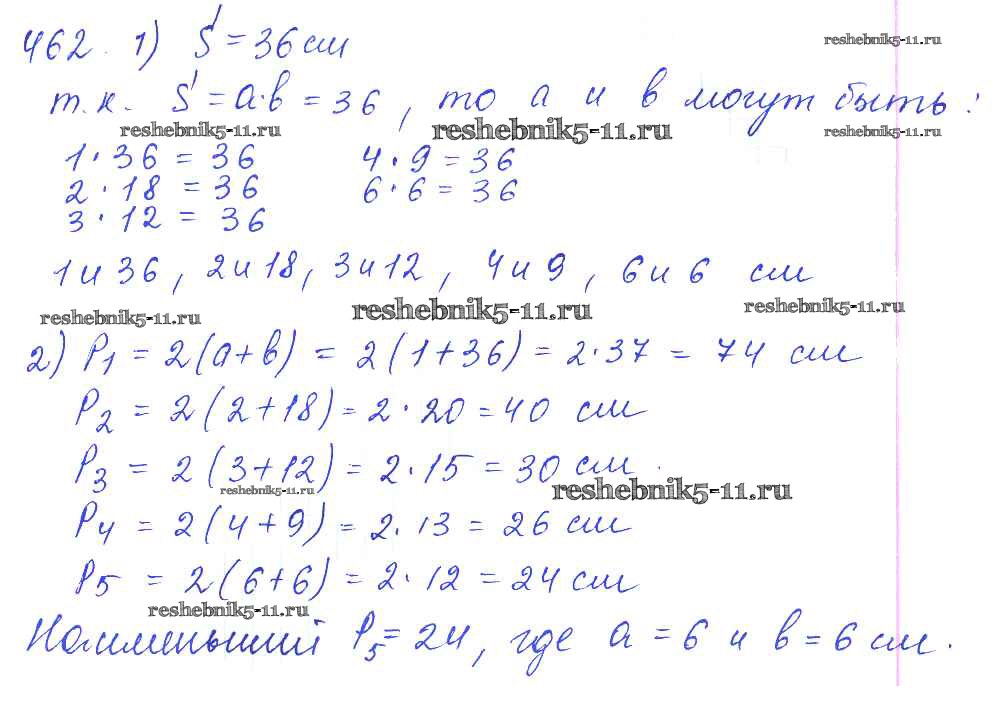 462. 1) S = 36 см
reshebnik5-11.ru
т.к. S = a·b = 36, то a и b могут быть:
reshebnik5-11.ru reshebnik5-11.ru reshebnik5-11.ru
1·36 = 36 4·9 = 36
2·18 = 36 6·6 = 36
3·12 = 36
1 и 36, 2 и 18, 3 и 12, 4 и 9, 6 и 6 см
reshebnik5-11.ru reshebnik5-11.ru reshebnik5-11.ru
2) P1 = 2(a+b) = 2(1+36) = 2·37 = 74 см
P2 = 2(2+18) = 2·20 = 40 см
P3 = 2(3+12) = 2·15 = 30 см.
reshebnik5-11.ru reshebnik5-11.ru
P4 = 2(4+9) = 2·13 = 26 см
P5 = 2(6+6) = 2·12 = 24 см
reshebnik5-11.ru
Наименьший P5 = 24, где a = 6 и b = 6 см.